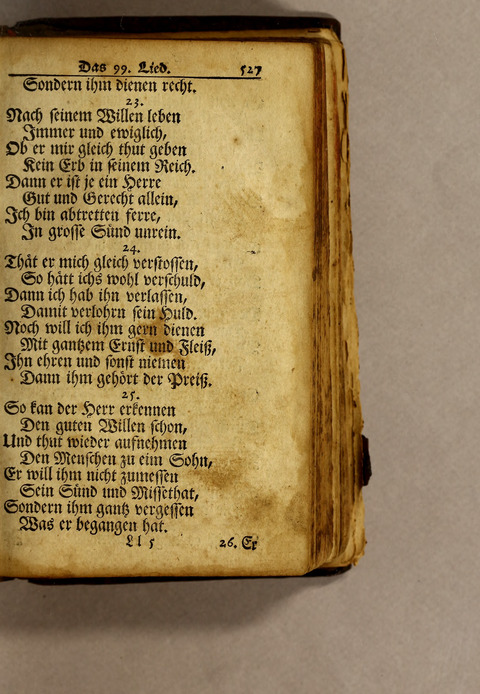 Das 99. Lied. 527
Sondern ihm dienen recht.
23.
Nach seinem Willen leben
Immer und ewiglich,
Ob er mir gleich thut geben
Kein Erb in seinem Reich.
Dann er ist je ein Herre
Gut und Gerecht allein,
Ich bin abtretten ferre,
In grosse Sünd unrein.
24.
Thät er mich gleich verstossen,
So hätt ichs wohl verschuld,
Dann ich hab ihn verlassen,
Damit verlohrn sein Huld.
Noch will ich ihm gern dienen
Mit gantzem Ernst und Fleiß,
Ihn ehren und sonst niemen
Dann ihm gehört der Preiß.
25.
So kan der Herr erkennen
Den guten Willen schon,
Und thut wieder aufnehmen
Den Menschen zu eim Sohn,
Er will ihm nicht zumessen
Sein Sünd und Missethat,
Sondern ihm gantz vergessen
Was er begangen hat.
Ll 5 26. Er